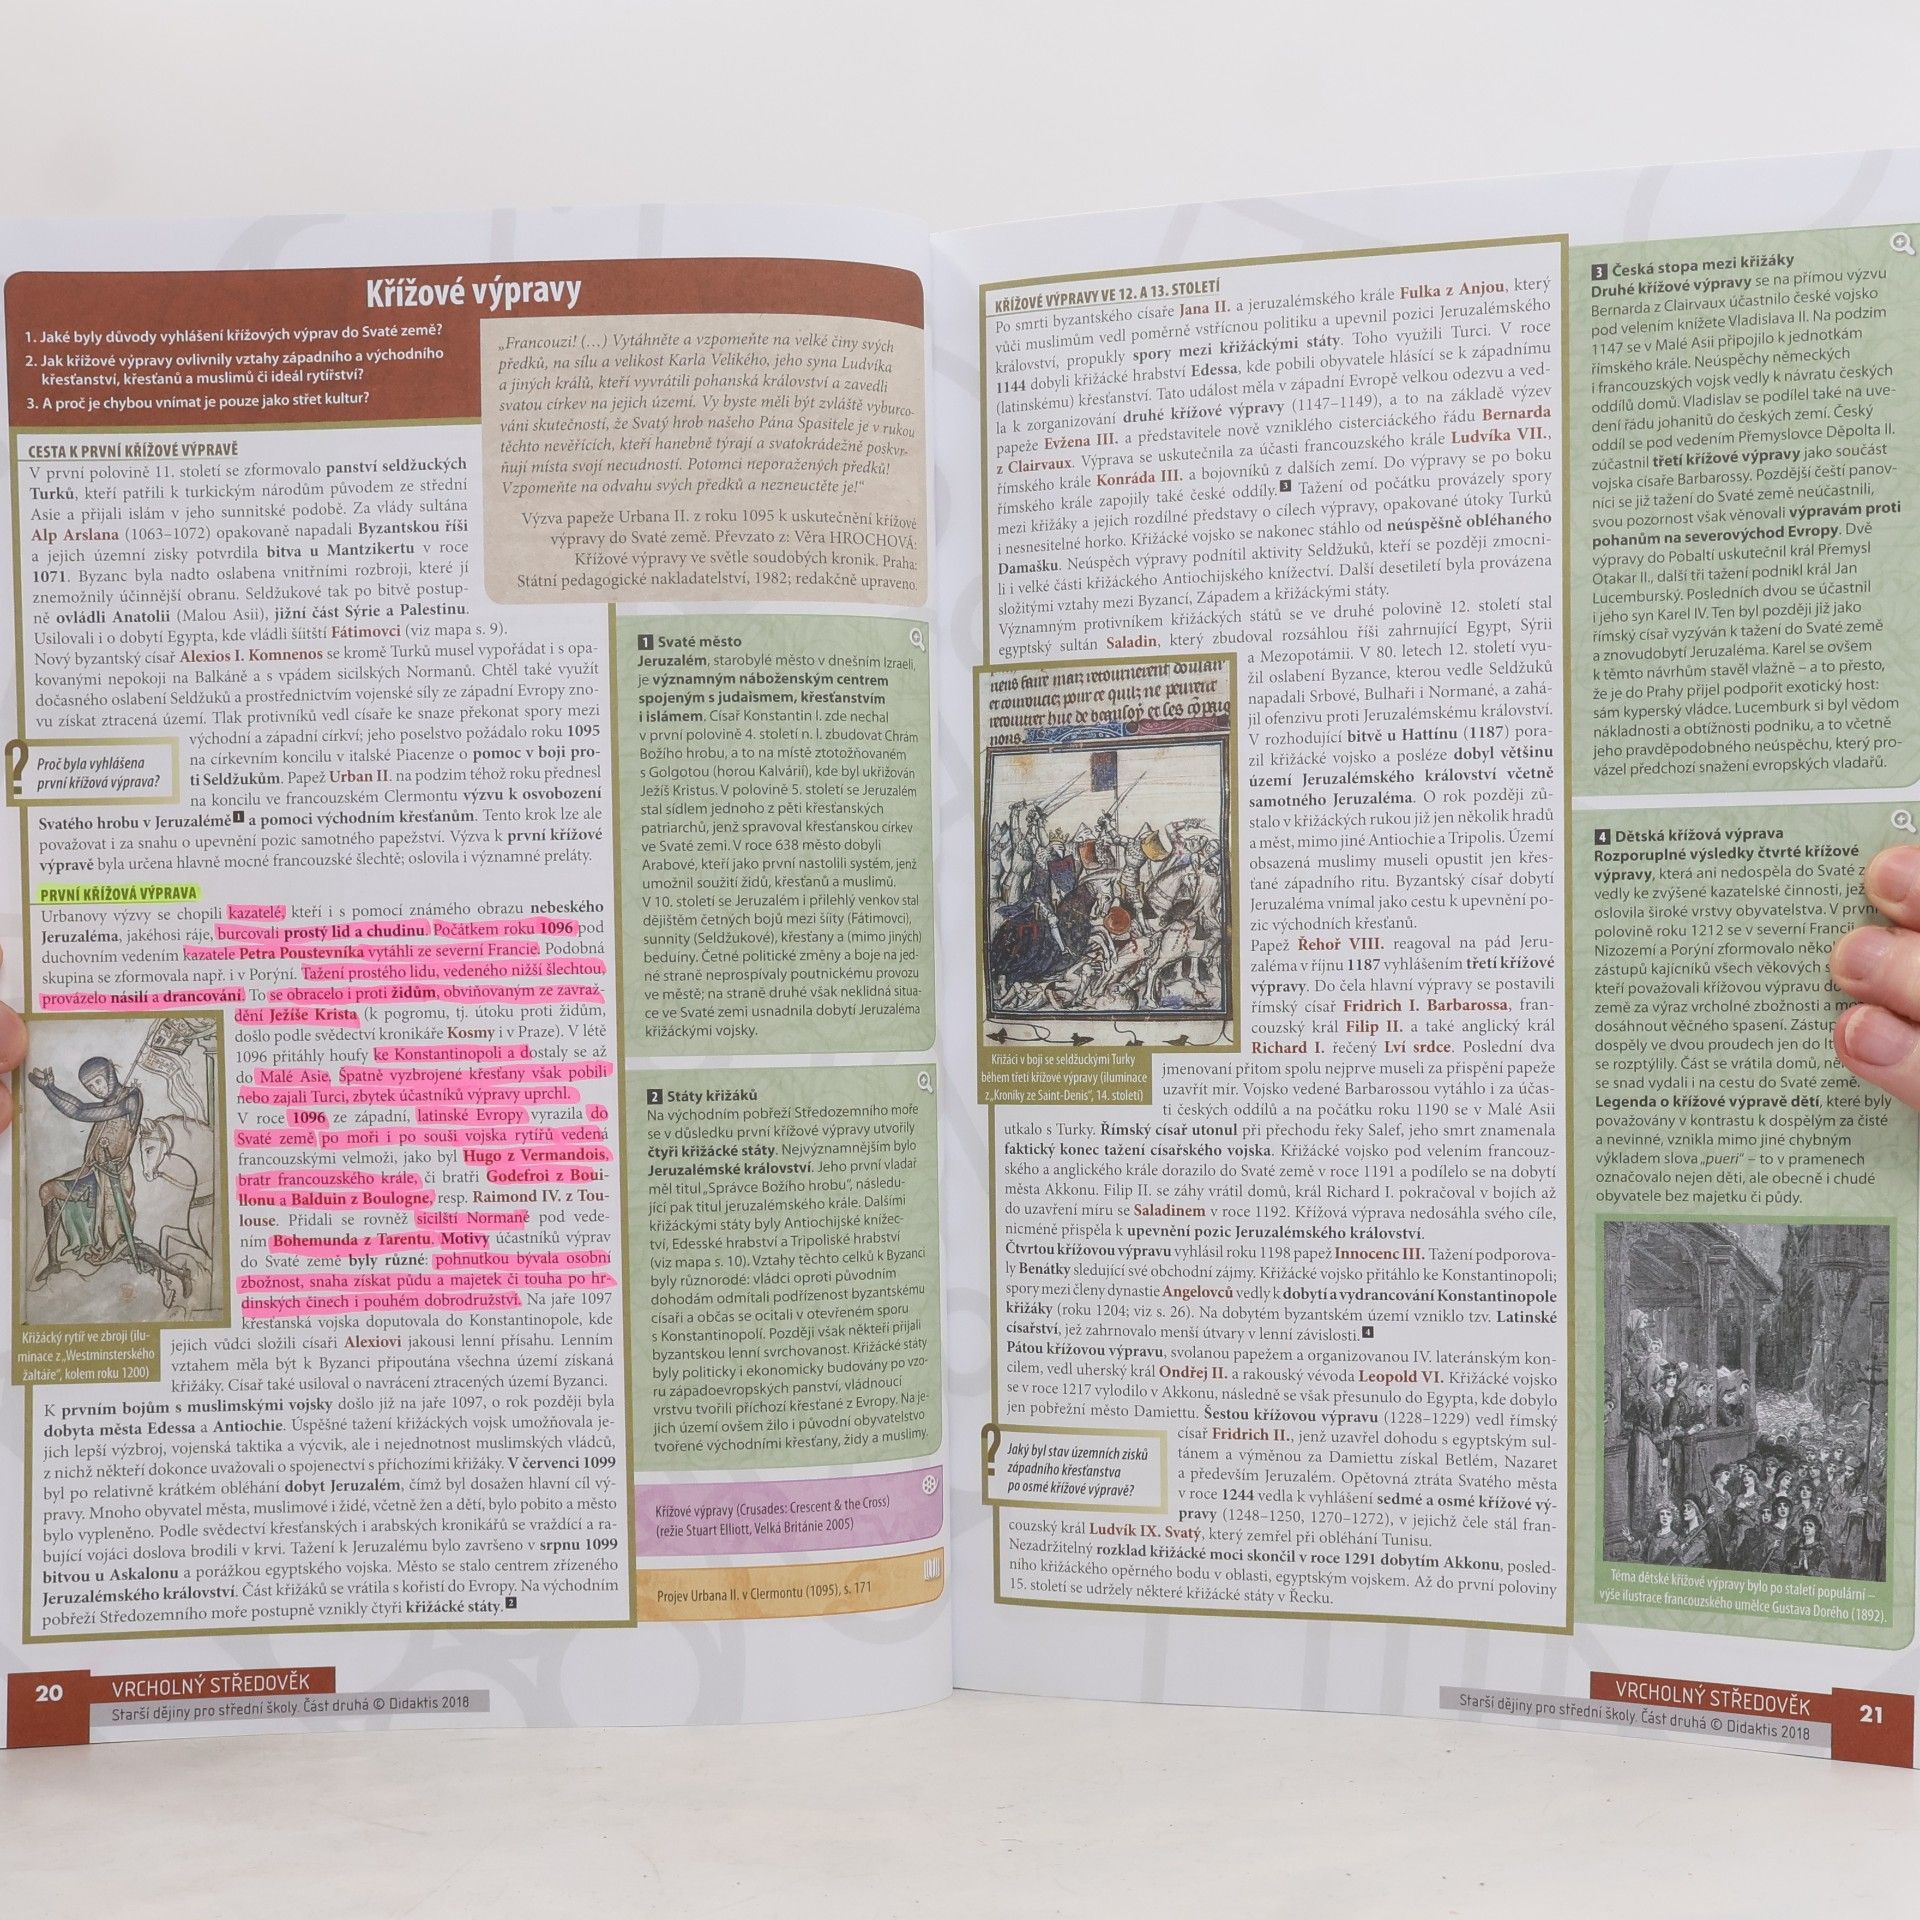 Křížové výpravy
1. Jaké byly důvody vyhlášení křížových výprav do Svaté země?
2. Jak křížové výpravy ovlivnily vztahy západního a východního
křesťanství, křesťanů a muslimů či ideál rytířství?
3. A proč je chybou vnímat je pouze jako střet kultur?
„Francouzi! (…) Vytáhněte a vzpomeňte na velké činy svých
předků, na sílu a velikost Karla Velikého, jeho syna Ludvíka
a jiných králů, kteří vyvrátili pohanská království a zavedli
svatou církev na jejich území. Vy byste měli být zvláště vyburco-
váni skutečností, že Svatý hrob našeho Pána Spasitele je v rukou
těchto nevěřících, kteří hanebně týrají a svatokrádežně poskvr-
ňují místa svojí necudností. Potomci neporažených předků!
Vzpomeňte na odvahu svých předků a nezneuctěte je!“
Výzva papeže Urbana II. z roku 1095 k uskutečnění křížové
výpravy do Svaté země. Převzato z: Věra HROCHOVÁ:
Křížové výpravy ve světle soudobých kronik. Praha:
Státní pedagogické nakladatelství, 1982; redakčně upraveno.
CESTA K PRVNÍ KŘÍŽOVÉ VÝPRAVĚ
V první polovině 11. století se zformovalo panství seldžuckých
Turků, kteří patřili k turkickým národům původem ze střední
Asie a přijali islám v jeho sunnitské podobě. Za vlády sultána
Alp Arslana (1063–1072) opakovaně napadali Byzantskou říši
a jejich územní zisky potvrdila bitva u Mantzikertu v roce
1071. Byzanc byla nadto oslabena vnitřními rozbroji, které jí
znemožnily účinnější obranu. Seldžukové tak po bitvě postup-
ně ovládli Anatolii (Malou Asii), jižní část Sýrie a Palestinu.
Usilovali i o dobytí Egypta, kde vládli šíitští Fátimovci (viz mapa s. 9).
Nový byzantský císař Alexios I. Komnenos se kromě Turků musel vypořádat i s opa-
kovanými nepokoji na Balkáně a s vpádem sicilských Normanů. Chtěl také využít
dočasného oslabení Seldžuků a prostřednictvím vojenské síly ze západní Evropy zno-
vu získat ztracená území. Tlak protivníků vedl císaře ke snaze překonat spory mezi
východní a západní církví; jeho poselstvo požádalo roku 1095
na církevním koncilu v italské Piacenze o pomoc v boji pro-
ti Seldžukům. Papež Urban II. na podzim téhož roku přednesl
na koncilu ve francouzském Clermontu výzvu k osvobození
Svatého hrobu v Jeruzalémě1 a pomoci východním křesťanům. Tento krok lze ale
považovat i za snahu o upevnění pozic samotného papežství. Výzva k první křížové
výpravě byla určena hlavně mocné francouzské šlechtě; oslovila i významné preláty.
?
Proč byla vyhlášena
první křížová výprava?
PRVNÍ KŘÍŽOVÁ VÝPRAVA
Urbanovy výzvy se chopili kazatelé, kteří i s pomocí známého obrazu nebeského
Jeruzaléma, jakéhosi ráje, burcovali prostý lid a chudinu. Počátkem roku 1096 pod
duchovním vedením kazatele Petra Poustevníka vytáhli ze severní Francie. Podobná
skupina se zformovala např. i v Porýní. Tažení prostého lidu, vedeného nižší šlechtou,
provázelo násilí a drancování. To se obracelo i proti židům, obviňovaným ze zavraž-
dění Ježíše Krista (k pogromu, tj. útoku proti židům,
došlo podle svědectví kronikáře Kosmy i v Praze). V létě
1096 přitáhly houfy ke Konstantinopoli a dostaly se až
do Malé Asie. Špatně vyzbrojené křesťany však pobili
nebo zajali Turci, zbytek účastníků výpravy uprchl.
V roce 1096 ze západní, latinské Evropy vyrazila do
Svaté země po moři i po souši vojska rytířů vedená
francouzskými velmoži, jako byl Hugo z Vermandois,
bratr francouzského krále, či bratři Godefroi z Boui-
llonu a Balduin z Boulogne, resp. Raimond IV. z Tou-
louse. Přidali se rovněž sicilští Normané pod vede-
ním Bohemunda z Tarentu. Motivy účastníků výprav
do Svaté země byly různé: pohnutkou bývala osobní
zbožnost, snaha získat půdu a majetek či touha po hr-
dinských činech i pouhém dobrodružství. Na jaře 1097
křesťanská vojska doputovala do Konstantinopole, kde
jejich vůdci složili císaři Alexiovi jakousi lenní přísahu. Lenním
vztahem měla být k Byzanci připoutána všechna území získaná
křižáky. Císař také usiloval o navrácení ztracených území Byzanci.
K prvním bojům s muslimskými vojsky došlo již na jaře 1097, o rok později byla
dobyta města Edessa a Antiochie. Úspěšné tažení křižáckých vojsk umožňovala je-
jich lepší výzbroj, vojenská taktika a výcvik, ale i nejednotnost muslimských vládců,
z nichž někteří dokonce uvažovali o spojenectví s příchozími křižáky. V červenci 1099
byl po relativně krátkém obléhání dobyt Jeruzalém, čímž byl dosažen hlavní cíl vý-
pravy. Mnoho obyvatel města, muslimové i židé, včetně žen a dětí, bylo pobito a město
bylo vypleněno. Podle svědectví křesťanských i arabských kronikářů se vraždící a ra-
bující vojáci doslova brodili v krvi. Tažení k Jeruzalému bylo završeno v srpnu 1099
bitvou u Askalonu a porážkou egyptského vojska. Město se stalo centrem zřízeného
Jeruzalémského království. Část křižáků se vrátila s kořistí do Evropy. Na východním
pobřeží Středozemního moře postupně vznikly čtyři křižácké státy.2
Křižácký rytíř ve zbroji (ilu-
minace z „Westminsterského
žaltáře“, kolem roku 1200)
1 Svaté město
Jeruzalém, starobylé město v dnešním Izraeli,
je významným náboženským centrem
spojeným s judaismem, křesťanstvím
i islámem. Císař Konstantin I. zde nechal
v první polovině 4. století n. l. zbudovat Chrám
Božího hrobu, a to na místě ztotožňovaném
s Golgotou (horou Kalvárií), kde byl ukřižován
Ježíš Kristus. V polovině 5. století se Jeruzalém
stal sídlem jednoho z pěti křesťanských
patriarchů, jenž spravoval křesťanskou církev
ve Svaté zemi. V roce 638 město dobyli
Arabové, kteří jako první nastolili systém, jenž
umožnil soužití židů, křesťanů a muslimů.
V 10. století se Jeruzalém i přilehlý venkov stal
dějištěm četných bojů mezi šíity (Fátimovci),
sunnity (Seldžukové), křesťany a (mimo jiných)
beduíny. Četné politické změny a boje na jed-
né straně neprospívaly poutnickému provozu
ve městě; na straně druhé však neklidná situa-
ce ve Svaté zemi usnadnila dobytí Jeruzaléma
křižáckými vojsky.
2 Státy křižáků
Na východním pobřeží Středozemního moře
se v důsledku první křížové výpravy utvořily
čtyři křižácké státy. Nejvýznamnějším bylo
Jeruzalémské království. Jeho první vladař
měl titul „Správce Božího hrobu“, následu-
jící pak titul jeruzalémského krále. Dalšími
křižáckými státy byly Antiochijské knížec-
tví, Edesské hrabství a Tripoliské hrabství
(viz mapa s. 10). Vztahy těchto celků k Byzanci
byly různorodé: vládci oproti původním
dohodám odmítali podřízenost byzantskému
císaři a občas se ocitali v otevřeném sporu
s Konstantinopolí. Později však někteří přijali
byzantskou lenní svrchovanost. Křižácké státy
byly politicky i ekonomicky budovány po vzo-
ru západoevropských panství, vládnoucí
vrstvu tvořili příchozí křesťané z Evropy. Na je-
jich území ovšem žilo i původní obyvatelstvo
tvořené východními křesťany, židy a muslimy.
Křížové výpravy (Crusades: Crescent & the Cross)
(režie Stuart Elliott, Velká Británie 2005)
Projev Urbana II. v Clermontu (1095), s. 171
20
VRCHOLNÝ STŘEDOVĚK
Starší dějiny pro střední školy. Část druhá © Didaktis 2018
KŘÍŽOVÉ VÝPRAVY VE 12. A 13. STOLETÍ
Po smrti byzantského císaře Jana II. a jeruzalémského krále Fulka z Anjou, který
vůči muslimům vedl poměrně vstřícnou politiku a upevnil pozici Jeruzalémského
království, propukly spory mezi křižáckými státy. Toho využili Turci. V roce
1144 dobyli křižácké hrabství Edessa, kde pobili obyvatele hlásící se k západnímu
(latinskému) křesťanství. Tato událost měla v západní Evropě velkou odezvu a ved-
la k zorganizování druhé křížové výpravy (1147–1149), a to na základě výzev
papeže Evžena III. a představitele nově vzniklého cisterciáckého řádu Bernarda
z Clairvaux. Výprava se uskutečnila za účasti francouzského krále Ludvíka VII.,
římského krále Konráda III. a bojovníků z dalších zemí. Do výpravy se po boku
římského krále zapojily také české oddíly.3 Tažení od počátku provázely spory
mezi křižáky a jejich rozdílné představy o cílech výpravy, opakované útoky Turků
i nesnesitelné horko. Křižácké vojsko se nakonec stáhlo od neúspěšně obléhaného
Damašku. Neúspěch výpravy podnítil aktivity Seldžuků, kteří se později zmocni-
li i velké části křižáckého Antiochijského knížectví. Další desetiletí byla provázena
složitými vztahy mezi Byzancí, Západem a křižáckými státy.
Významným protivníkem křižáckých států se ve druhé polovině 12. století stal
egyptský sultán Saladin, který zbudoval rozsáhlou říši zahrnující Egypt, Sýrii
a Mezopotámii. V 80. letech 12. století vyu-
žil oslabení Byzance, kterou vedle Seldžuků
napadali Srbové, Bulhaři i Normané, a zahá-
jil ofenzivu proti Jeruzalémskému království.
V rozhodující bitvě u Hattínu (1187) pora-
zil křižácké vojsko a posléze dobyl většinu
území Jeruzalémského království včetně
samotného Jeruzaléma. O rok později zů-
stalo v křižáckých rukou již jen několik hradů
a měst, mimo jiné Antiochie a Tripolis. Území
obsazená muslimy museli opustit jen křes-
ťané západního ritu. Byzantský císař dobytí
Jeruzaléma vnímal jako cestu k upevnění po-
zic východních křesťanů.
Papež Řehoř VIII. reagoval na pád Jeru-
zaléma v říjnu 1187 vyhlášením třetí křížové
výpravy. Do čela hlavní výpravy se postavili
římský císař Fridrich I. Barbarossa, fran-
couzský král Filip II. a také anglický král
Richard I. řečený Lví srdce. Poslední dva
jmenovaní přitom spolu nejprve museli za přispění papeže
uzavřít mír. Vojsko vedené Barbarossou vytáhlo i za účas-
ti českých oddílů a na počátku roku 1190 se v Malé Asii
utkalo s Turky. Římský císař utonul při přechodu řeky Salef, jeho smrt znamenala
faktický konec tažení císařského vojska. Křižácké vojsko pod velením francouz-
ského a anglického krále dorazilo do Svaté země v roce 1191 a podílelo se na dobytí
města Akkonu. Filip II. se záhy vrátil domů, král Richard I. pokračoval v bojích až
do uzavření míru se Saladinem v roce 1192. Křížová výprava nedosáhla svého cíle,
nicméně přispěla k upevnění pozic Jeruzalémského království.
Čtvrtou křížovou výpravu vyhlásil roku 1198 papež Innocenc III. Tažení podporova-
ly Benátky sledující své obchodní zájmy. Křižácké vojsko přitáhlo ke Konstantinopoli;
spory mezi členy dynastie Angelovců vedly k dobytí a vydrancování Konstantinopole
křižáky (roku 1204; viz s. 26). Na dobytém byzantském území vzniklo tzv. Latinské
císařství, jež zahrnovalo menší útvary v lenní závislosti.4
Pátou křížovou výpravu, svolanou papežem a organizovanou IV. lateránským kon-
cilem, vedl uherský král Ondřej II. a rakouský vévoda Leopold VI. Křižácké vojsko
se v roce 1217 vylodilo v Akkonu, následně se však přesunulo do Egypta, kde dobylo
jen pobřežní město Damiettu. Šestou křížovou výpravu (1228–1229) vedl římský
císař Fridrich II., jenž uzavřel dohodu s egyptským sul-
tánem a výměnou za Damiettu získal Betlém, Nazaret
a především Jeruzalém. Opětovná ztráta Svatého města
v roce 1244 vedla k vyhlášení sedmé a osmé křížové vý-
pravy (1248–1250, 1270–1272), v jejichž čele stál fran-
couzský král Ludvík IX. Svatý, který zemřel při obléhání Tunisu.
Nezadržitelný rozklad křižácké moci skončil v roce 1291 dobytím Akkonu, posled-
ního křižáckého opěrného bodu v oblasti, egyptským vojskem. Až do první poloviny
15. století se udržely některé křižácké státy v Řecku.
?
Jaký byl stav územních zisků
západního křesťanstva
po osmé křížové výpravě?
Křižáci v boji se seldžuckými Turky
během třetí křížové výpravy (iluminace
z „Kroniky ze Saint-Denis“, 14. století)
3 Česká stopa mezi křižáky
Druhé křížové výpravy se na přímou výzvu
Bernarda z Clairvaux účastnilo české vojsko
pod velením knížete Vladislava II. Na podzim
1147 se v Malé Asii připojilo k jednotkám
římského krále. Neúspěchy německých
i francouzských vojsk vedly k návratu českých
oddílů domů. Vladislav se podílel také na uve-
dení řádu johanitů do českých zemí. Český
oddíl se pod vedením Přemyslovce Děpolta II.
zúčastnil třetí křížové výpravy jako součást
vojska císaře Barbarossy. Pozdější čeští panov-
níci se již tažení do Svaté země neúčastnili,
svou pozornost však věnovali výpravám proti
pohanům na severovýchod Evropy. Dvě
výpravy do Pobaltí uskutečnil král Přemysl
Otakar II., další tři tažení podnikl král Jan
Lucemburský. Posledních dvou se účastnil
i jeho syn Karel IV. Ten byl později již jako
římský císař vyzýván k tažení do Svaté země
a znovudobytí Jeruzaléma. Karel se ovšem
k těmto návrhům stavěl vlažně – a to přesto,
že je do Prahy přijel podpořit exotický host:
sám kyperský vládce. Lucemburk si byl vědom
nákladnosti a obtížnosti podniku, a to včetně
jeho pravděpodobného neúspěchu, který pro-
vázel předchozí snažení evropských vladařů.
4 Dětská křížová výprava
Rozporuplné výsledky čtvrté křížové
výpravy, která ani nedospěla do Svaté z
vedly ke zvýšené kazatelské činnosti, jež
oslovila široké vrstvy obyvatelstva. V první
polovině roku 1212 se v severní Francii,
Nizozemí a Porýní zformovalo někol
zástupů kajícníků všech věkových s
kteří považovali křížovou výpravu do
země za výraz vrcholné zbožnosti a mo
dosáhnout věčného spasení. Zástup
dospěly ve dvou proudech jen do It
se rozptýlily. Část se vrátila domů, ně
se snad vydali i na cestu do Svaté země.
Legenda o křížové výpravě dětí, které byly
považovány v kontrastu k dospělým za čisté
a nevinné, vznikla mimo jiné chybným
výkladem slova „pueri“ – to v pramenech
označovalo nejen děti, ale obecně i chudé
obyvatele bez majetku či půdy.
Téma dětské křížové výpravy bylo po staletí populární –
výše ilustrace francouzského umělce Gustava Dorého (1892).
Starší dějiny pro střední školy. Část druhá © Didaktis 2018
VRCHOLNÝ STŘEDOVĚK
21